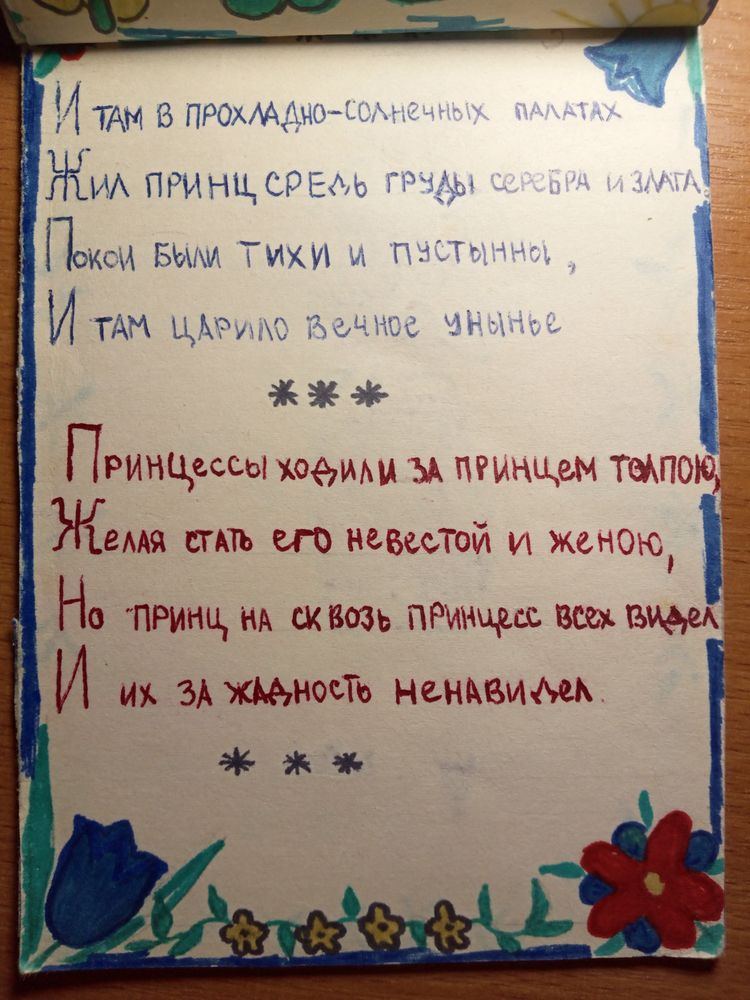 И ТАМ В ПРОХЛАДНО-СОЛНЕЧНЫХ ПАЛАТАХ
ЖИЛ ПРИНЦ СРЕДЬ ГРУДЫ СЕРЕБРА И ЗЛАТА.
ПОКОИ БЫЛИ ТИХИ И ПУСТЫННЫ,
И ТАМ ЦАРИЛО ВЕЧНОЕ УНЫНЬЕ
***
ПРИНЦЕССЫ ХОДИЛИ ЗА ПРИНЦЕМ ТОЛПОЮ,
ЖЕЛАЯ СТАТЬ ЕГО НЕВЕСТОЙ И ЖЕНОЮ,
НО ПРИНЦ НА СКВОЗЬ ПРИНЦЕСС ВСЕХ ВИДЕЛ
И ИХ ЗА ЖАДНОСТЬ НЕНАВИДЕЛ.
***